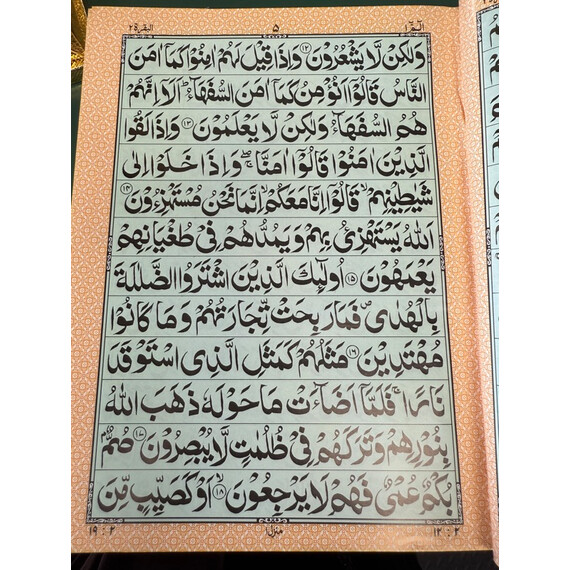 البقرة ٢ ٥ الٓمّٓ ١
وَلٰكِنْ لَّا يَشْعُرُوْنَ ⑫ وَاِذَا قِيْلَ لَهُمْ اٰمِنُوْا كَمَاۤ اٰمَنَ
النَّاسُ قَالُوْۤا اَنُؤْمِنُ كَمَاۤ اٰمَنَ السُّفَهَآءُ ؕ اَلَاۤ اِنَّهُمْ
هُمُ السُّفَهَآءُ وَلٰكِنْ لَّا يَعْلَمُوْنَ ⑬ وَاِذَا لَقُوا
الَّذِيْنَ اٰمَنُوْا قَالُوْۤا اٰمَنَّا ۚۖ وَاِذَا خَلَوْا اِلٰى
شَيٰطِيْنِهِمْ ۙ قَالُوْۤا اِنَّا مَعَكُمْ ۙ اِنَّمَا نَحْنُ مُسْتَهْزِءُوْنَ ⑭
اَللّٰهُ يَسْتَهْزِئُ بِهِمْ وَيَمُدُّهُمْ فِىْ طُغْيَانِهِمْ
يَعْمَهُوْنَ ⑮ اُولٰٓئِكَ الَّذِيْنَ اشْتَرَوُا الضَّلٰلَةَ
بِالْهُدٰى ۪ فَمَا رَبِحَتْ تِّجَارَتُهُمْ وَمَا كَانُوْا
مُهْتَدِيْنَ ⑯ مَثَلُهُمْ كَمَثَلِ الَّذِى اسْتَوْقَدَ
نَارًا ۚ فَلَمَّاۤ اَضَآءَتْ مَا حَوْلَهٗ ذَهَبَ اللّٰهُ
بِنُوْرِهِمْ وَتَرَكَهُمْ فِىْ ظُلُمٰتٍ لَّا يُبْصِرُوْنَ ⑰ صُمٌّۢ
بُكْمٌ عُمْىٌ فَهُمْ لَا يَرْجِعُوْنَ ۙ⑱ اَوْ كَصَيِّبٍ مِّنَ
١٩ : ٢ منزل ١ ١٢ : ٢